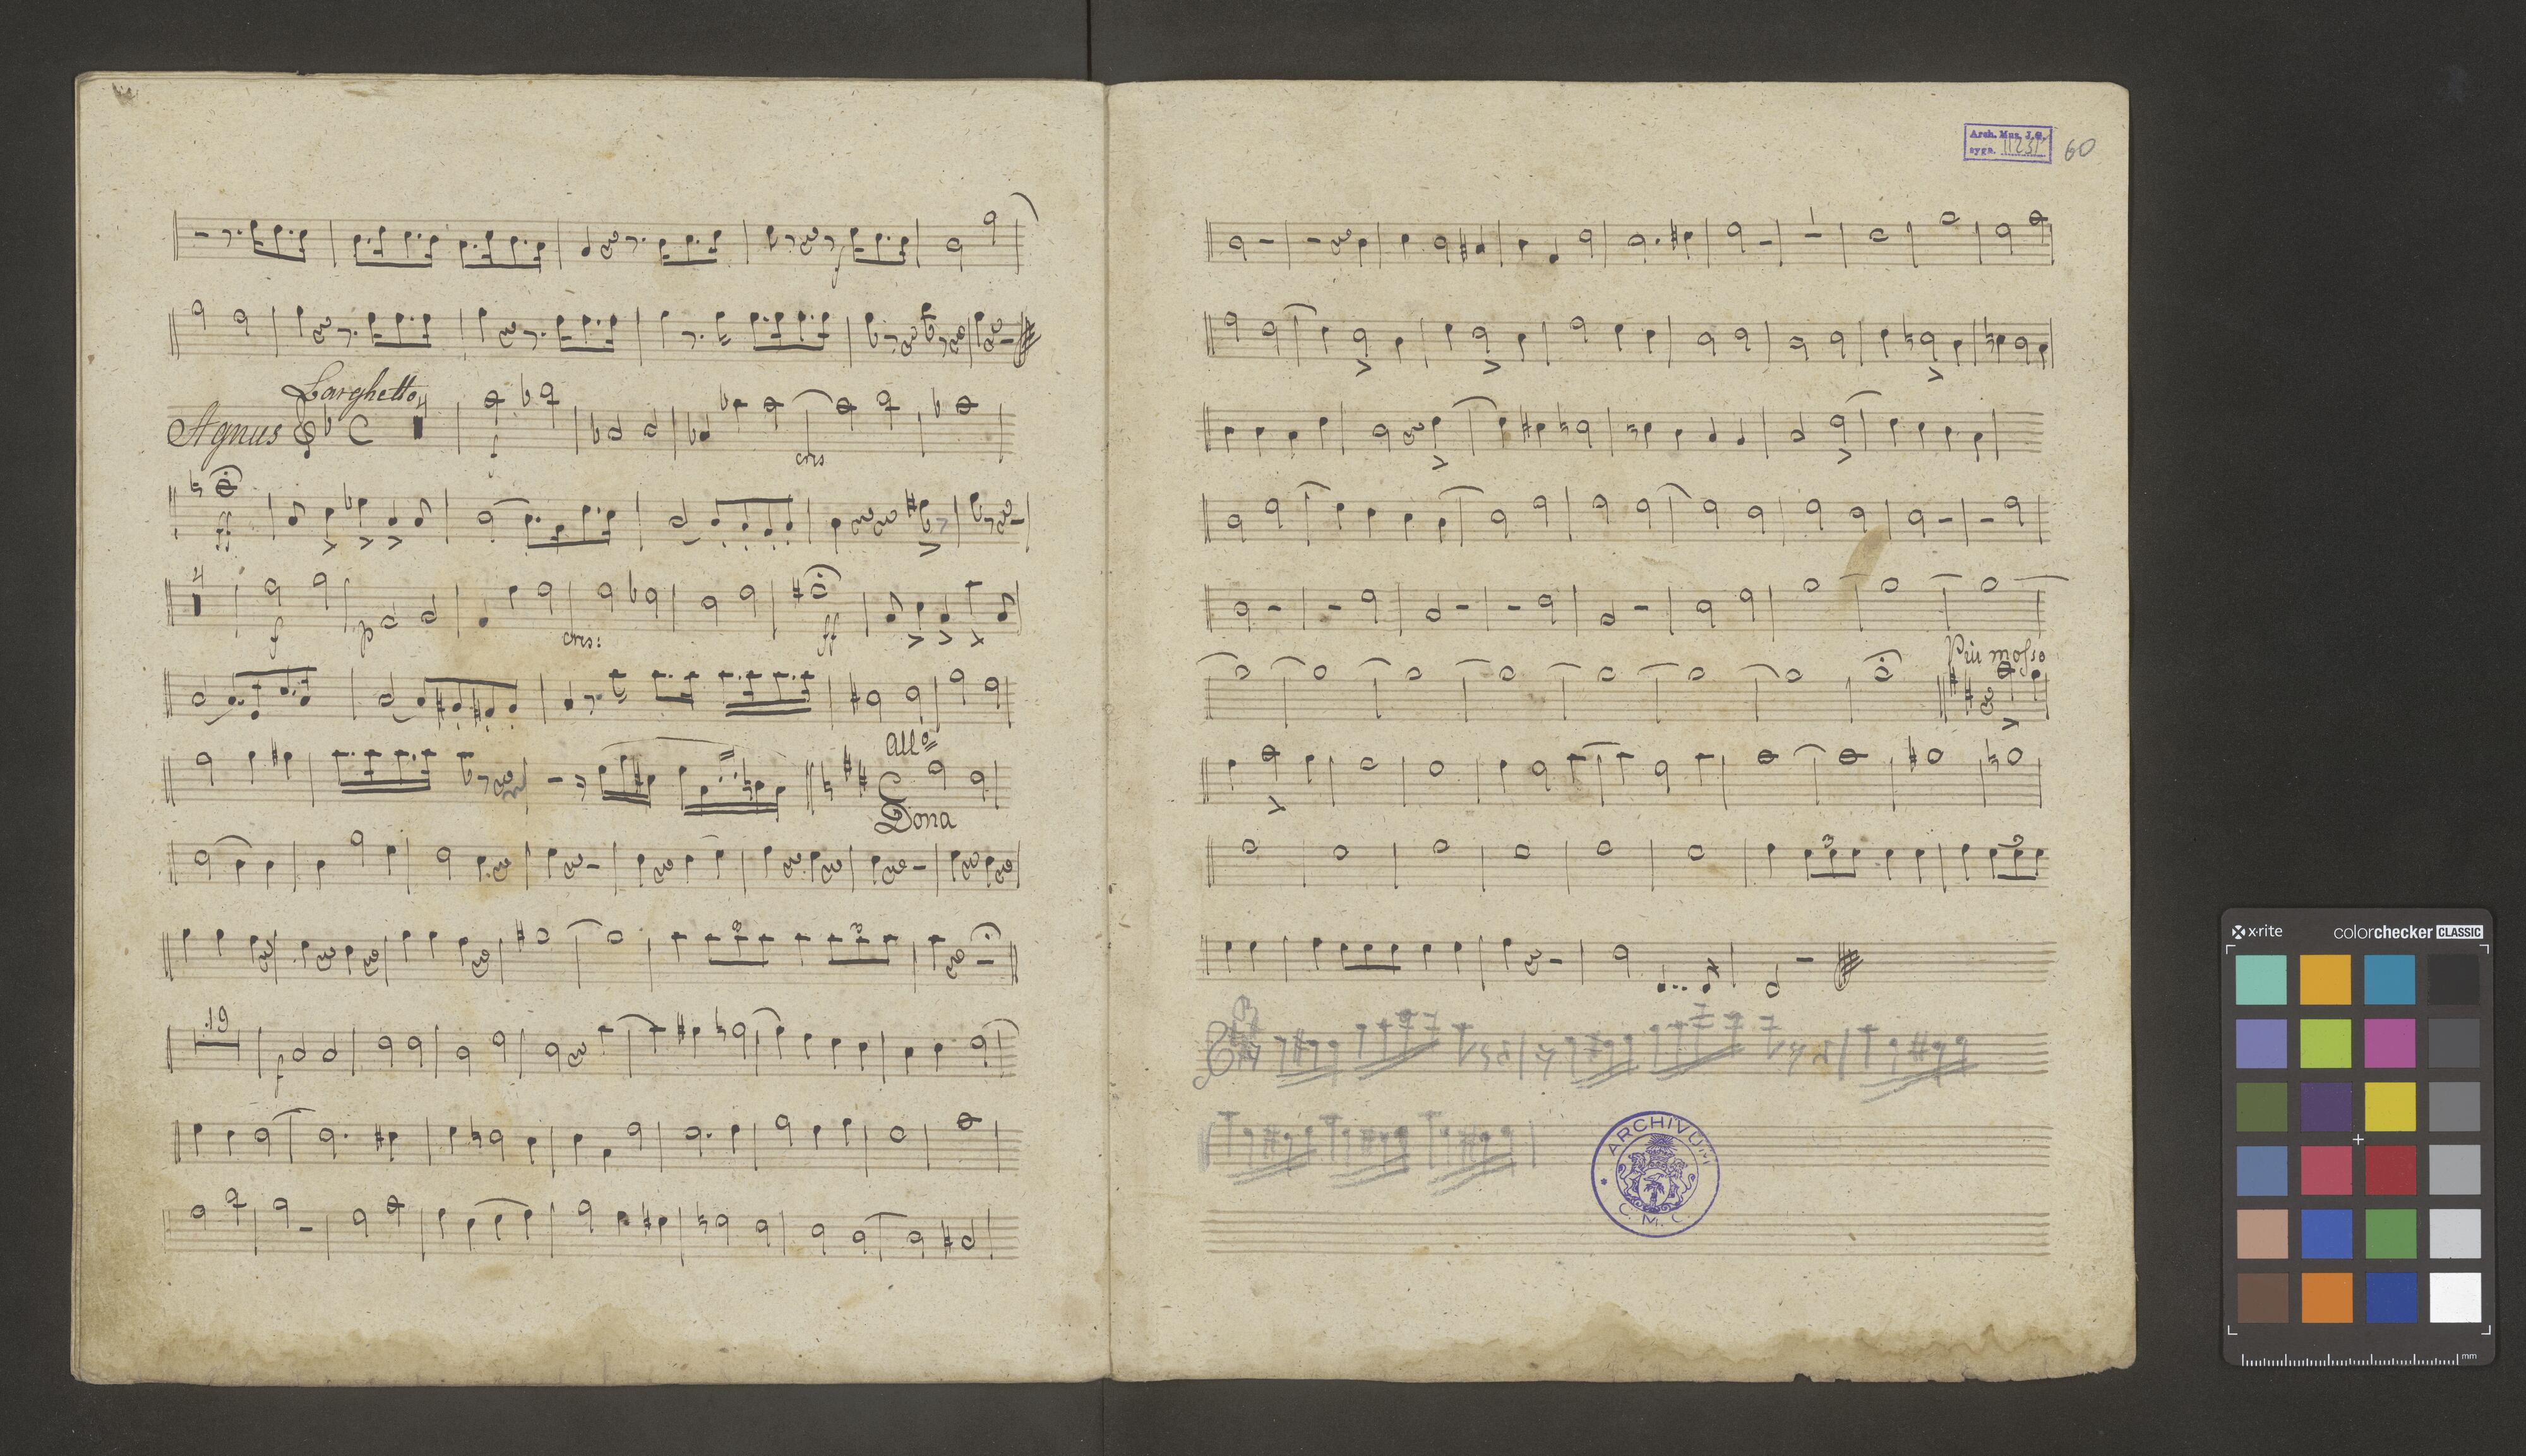 f
Larghetto
4
Agnus C
f
cres
ff
4
f p cres: ff
all⁰
C
Dona
3 3
19
f
Arch. Mus. J.G.
sygn. 60
Più mosso
3 3
ARCHIVUM
C. M. C.
x-rite colorchecker CLASSIC
mm